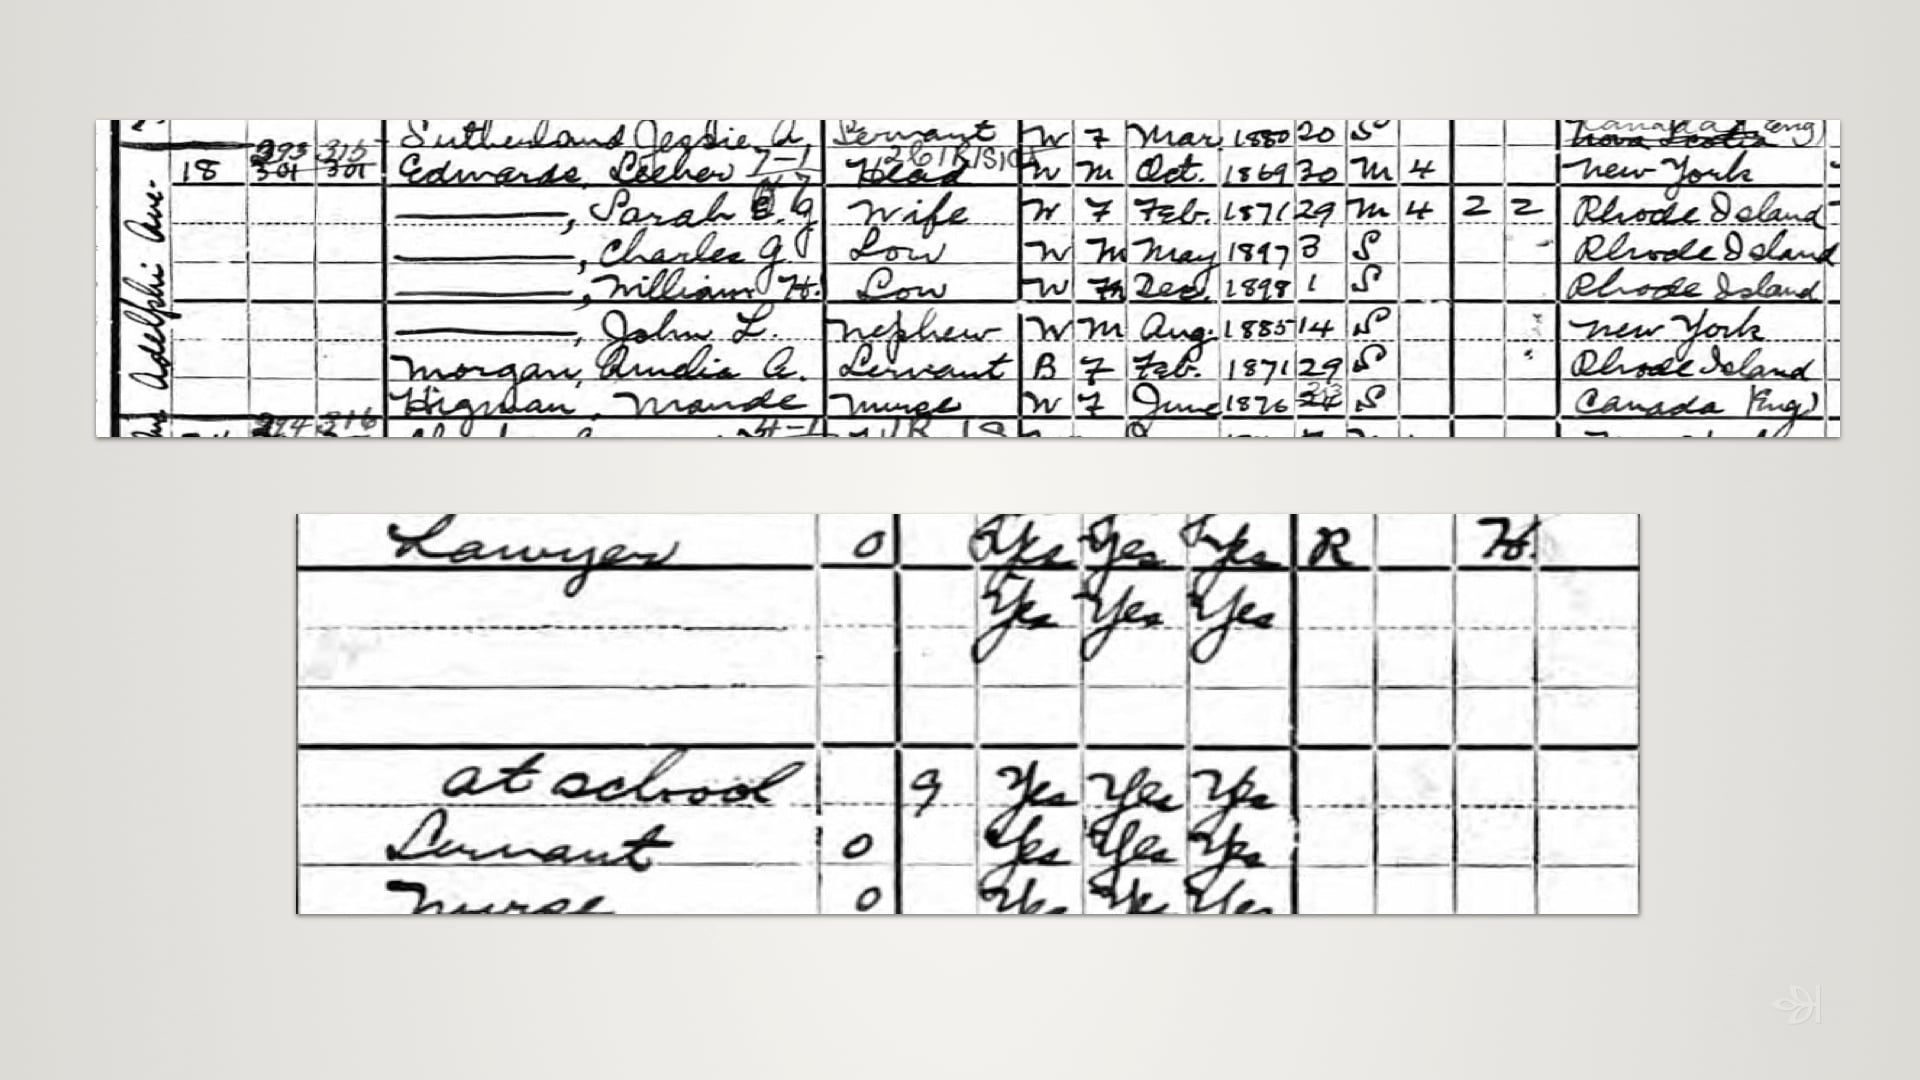 Adelphi Ave.
Sutherland Jessie A. Servant W F Mar. 1880 20 S Canada (Eng) Nova Scotia
18 293 315 301 301 Edwards, 7-1 Head W M Oct. 1869 30 M 4 New York
, Sarah Wife W F Feb. 1871 29 M 4 2 2 Rhode Island
, Charles G. Son W M May 1897 3 S Rhode Island
, William H. Son W M Dec. 1898 1 S Rhode Island
, John L. Nephew W M Aug. 1885 14 S New York
Morgan, A. Servant B F Feb. 1871 29 S Rhode Island
Higman, Maude Nurse W F June 1876 S Canada (Eng)
294 316 4-1
Lawyer 0 Yes Yes Yes R H.
Yes Yes Yes
at school 9 Yes Yes Yes
Servant 0 Yes Yes Yes
Nurse 0 Yes Yes Yes